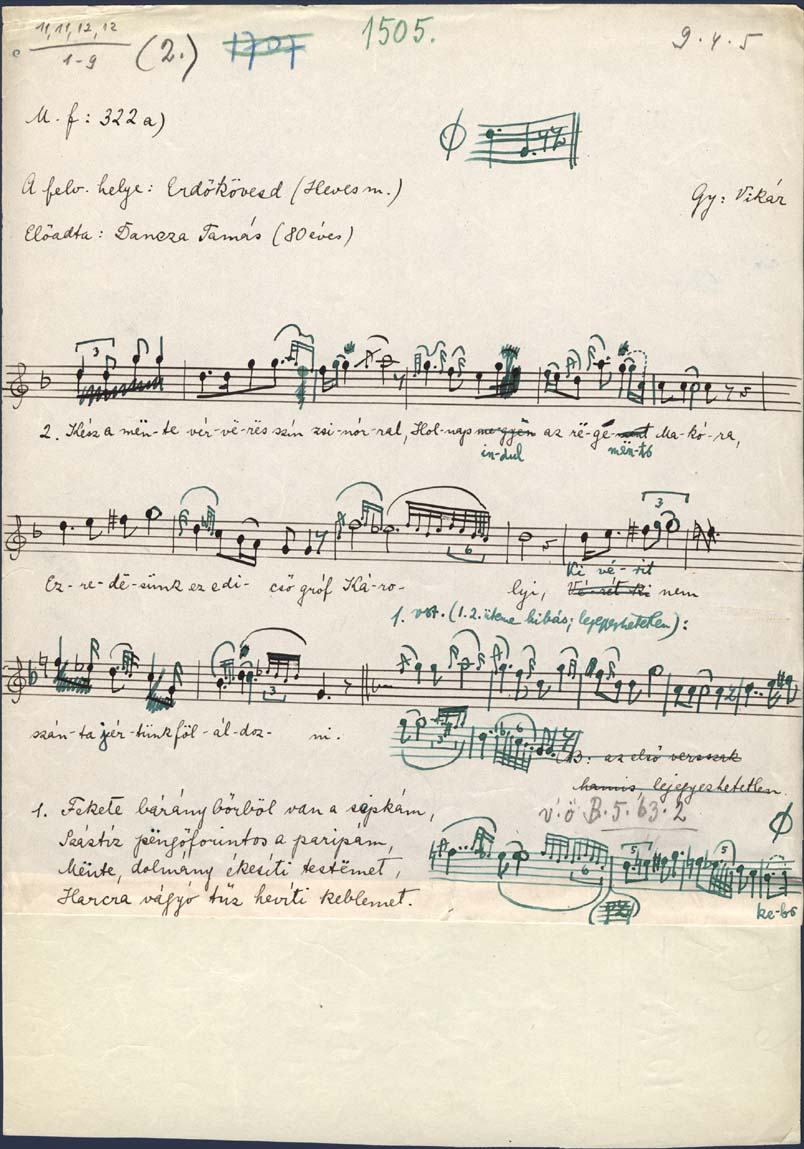 11, 11, 12, 12
1-9
(2.)
1707
1505.
9.4.5
M. f: 322 a)
A felv. helye: Erdőkövesd (Heves m.)
Gy: Vikár
Előadta: Dancza Tamás (80 éves)
3
2. Kész a mën-te vér-vë-rës szín zsi-nór-ral, Hol-nap megyën az rë-gé-ment Ma-kó-ra,
in-dul mën-tö
3
6
Ez-re-dë-sünk ez e di-cső gróf Ká-ro-lyi, Vé-rét ki nem
Ki vé-rit
1. vsz. (1. 2. üteme hibás; lejegyezhetetlen):
3
szán-ta jér-tünk föl-ál-doz-ni.
3 6 6
(B: az első versszak
hamis, lejegyezhetetlen.
1. Fekete báránybőrből van a sapkám,
v.ö B.5.63.2
Száztíz pëngőforintos a paripám,
Mënte, dolmány ékesíti testëmet,
6 5 5
Harcra vágyó tűz hevíti keblemet.
ke-bö